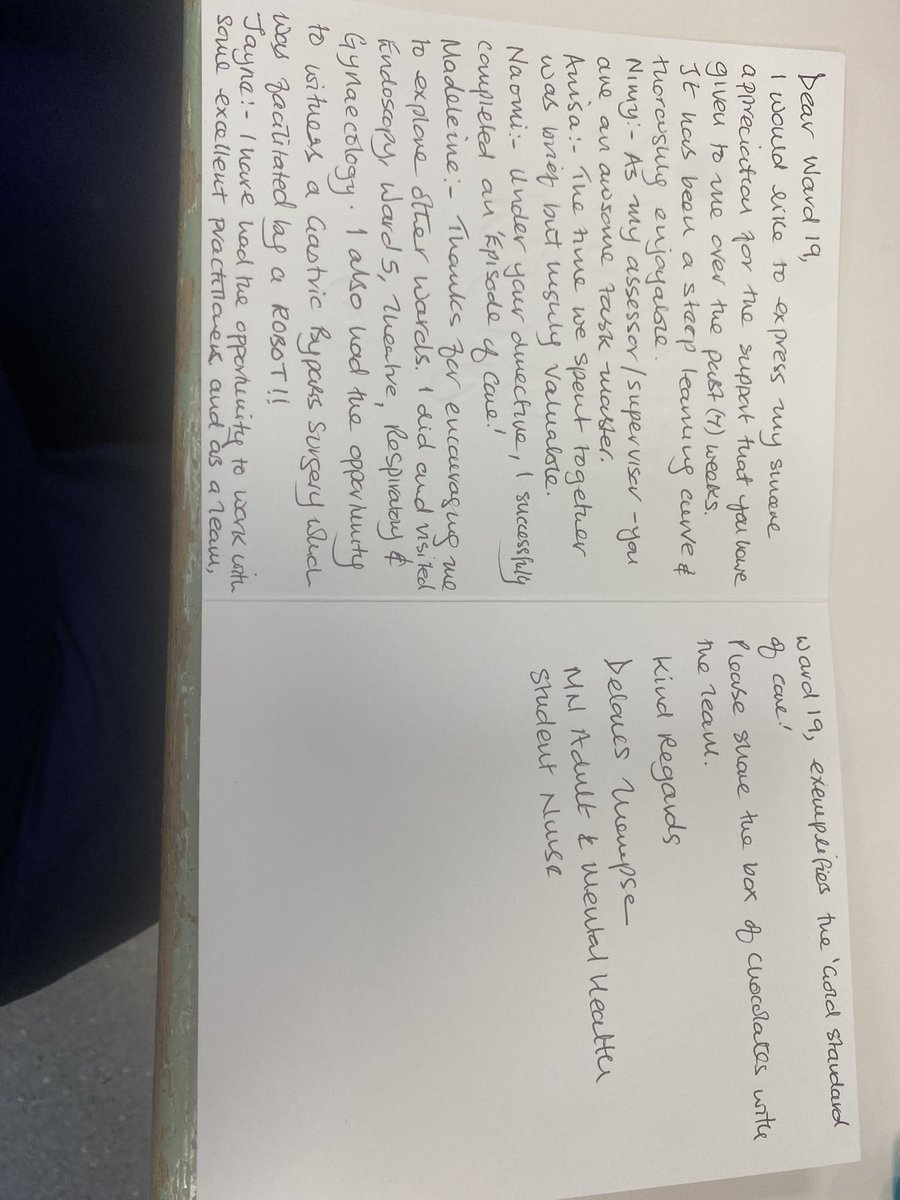 Dear Ward 19,
I would like to express my sincere
appreciation for the support that you have
given to me over the past (7) weeks.
It has been a steep learning curve &
thoroughly enjoyable.
Nimy:- As my assessor/supervisor - you
are an awsome task-master.
Anisa:- The time we spent together
was brief but highly valuable.
Naomi:- Under your directive, I successfully
completed an 'Episode of Care!'
Madeleine:- Thanks for encouraging me
to explore other wards. I did and visited
Endoscopy, Ward 5, Theatre, Respiratory &
Gynaecology. I also had the opportunity
to witness a Gastric Bypass Surgery which
was facilitated by a ROBOT!!
Jayne:- I have had the opportunity to work with
some excellent practitioners and as a team,
Ward 19, exemplifies the 'Gold Standard
of care!
Please share the box of chocolates with
the team.
Kind Regards
MN Adult & Mental Health
Student Nurse